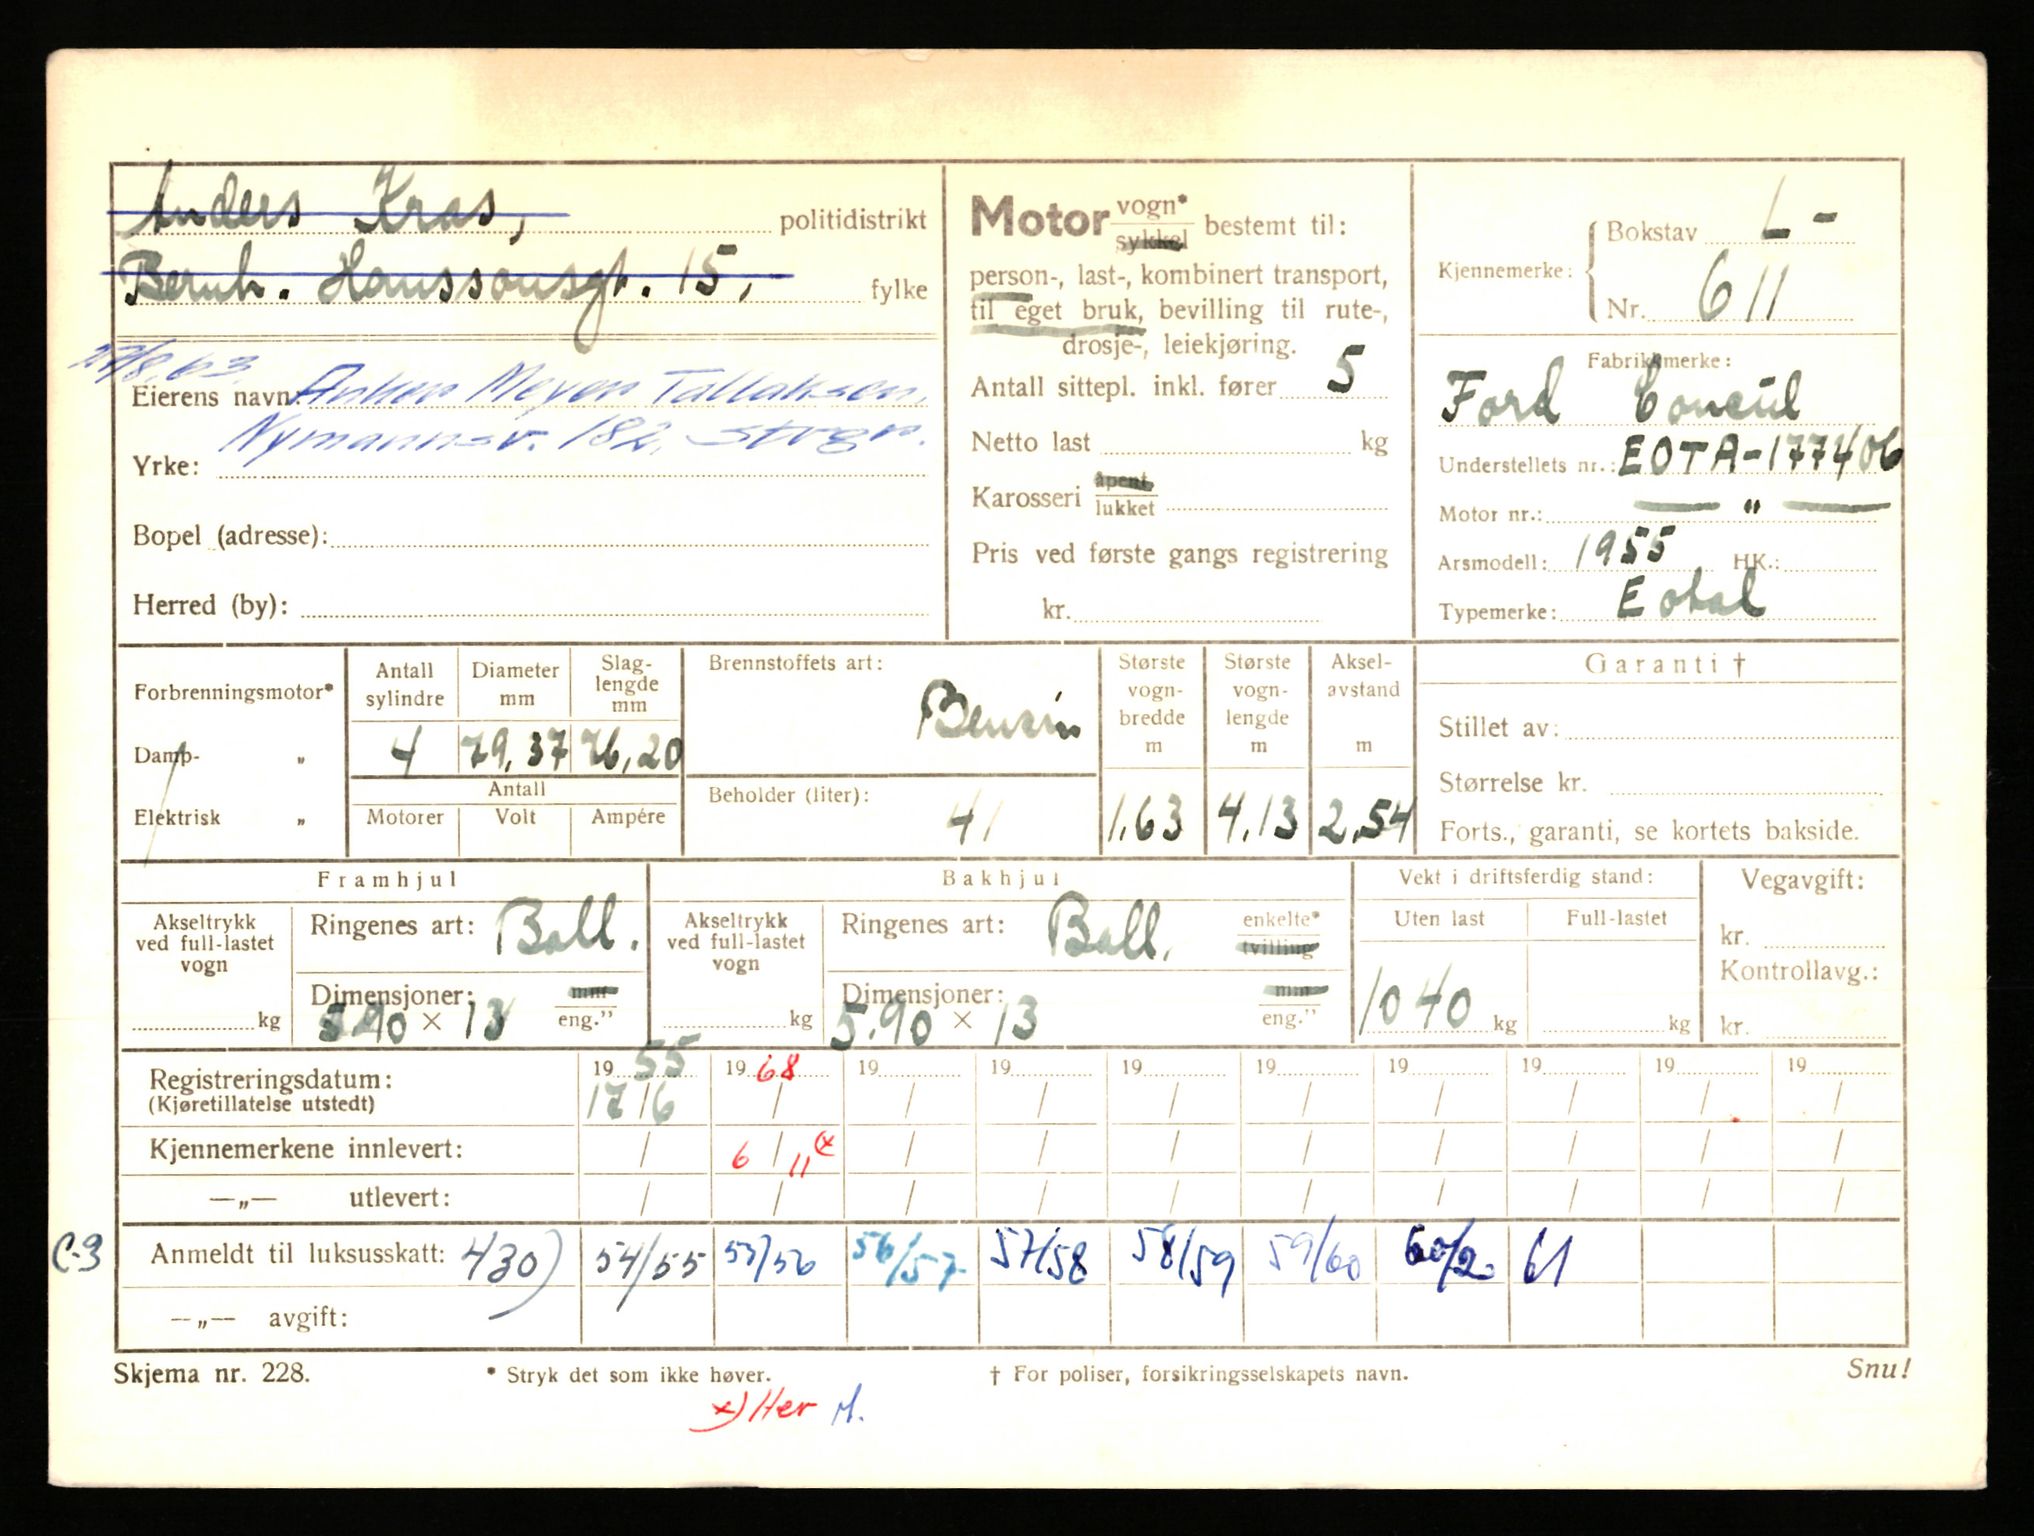 Anders Kras, politidistrikt
Bernh. Hanssonsgt. 15, fylke
Eierens navn: Meyer Tallaksen,
Nymannsv. 182, Stvgr.
Yrke:
Bopel (adresse):
Herred (by):
Motor vogn* sykkel bestemt til:
person-, last-, kombinert transport,
til eget bruk, bevilling til rute-,
drosje-, leiekjøring.
Antall sittepl. inkl. fører 5
Netto last kg
Karosseri åpent lukket
Pris ved første gangs registrering
kr.
Kjennemerke: Bokstav L-
Nr. 611
Fabrikkmerke:
Ford Concul
Understellets nr.: EOTA-177406
Motor nr.: — " —
Arsmodell: 1955 HK.:
Typemerke: Eotal
Forbrenningsmotor*
Damp- „
Elektrisk „
Antall sylindre 4
Diameter mm 79,37
Slag-lengde mm 76,20
Antall
Motorer Volt Ampére
Brennstoffets art: Bensin
Beholder (liter): 41
Største vogn-bredde m 1,63
Største vogn-lengde m 4,13
Aksel-avstand m 2,54
Garanti †
Stillet av:
Størrelse kr.
Forts., garanti, se kortets bakside.
Framhjul
Akseltrykk ved full-lastet vogn kg
Ringenes art: Ball.
Dimensjoner: mm eng."
5.90 × 13
Bakhjul
Akseltrykk ved full-lastet vogn kg
Ringenes art: Ball. enkelte* tvilling
Dimensjoner: mm eng."
5.90 × 13
Vekt i driftsferdig stand:
Uten last Full-lastet
1040 kg kg
Vegavgift:
kr.
Kontrollavg.:
kr.
Registreringsdatum: 19 55 19 68 19 19 19 19 19 19 19 19
(Kjøretillatelse utstedt) 17/6 / / / / / / / / /
Kjennemerkene innlevert: / 6/11 x) / / / / / / / /
—„— utlevert: / / / / / / / / / /
C-3 Anmeldt til luksusskatt: 430) 54/55 55/56 56/57 57/58 58/59 59/60 60/2. 61
—„— avgift:
Skjema nr. 228. * Stryk det som ikke høver. † For poliser, forsikringsselskapets navn. Snu!
x) Her